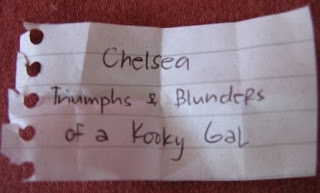 Chelsea
Triumphs & Blunders
of a Kooky Gal